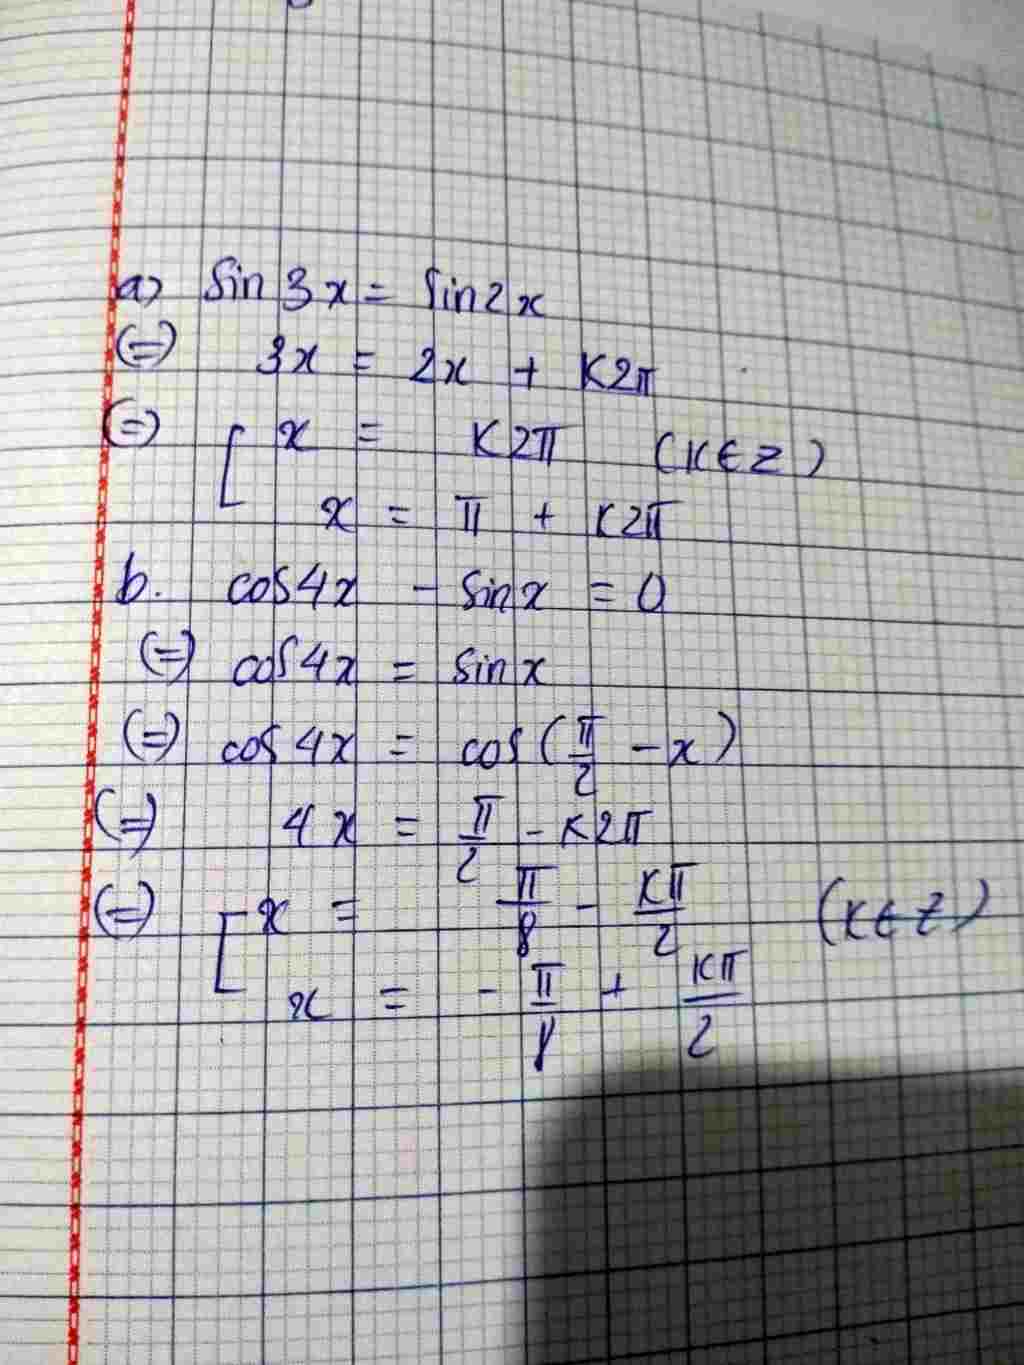 a) sin 3x = sin 2x
(=) 3x = 2x + K2π
(=) [ x = K2π (K∈Z)
x = π + K2π
b. cos4x - sinx = 0
(=) cos4x = sinx
(=) cos 4x = cos(π/2 - x)
(=) 4x = π/2 - K2π
(=) [ x = π/8 - Kπ/2 (K∈Z)
x = - π/8 + Kπ/2